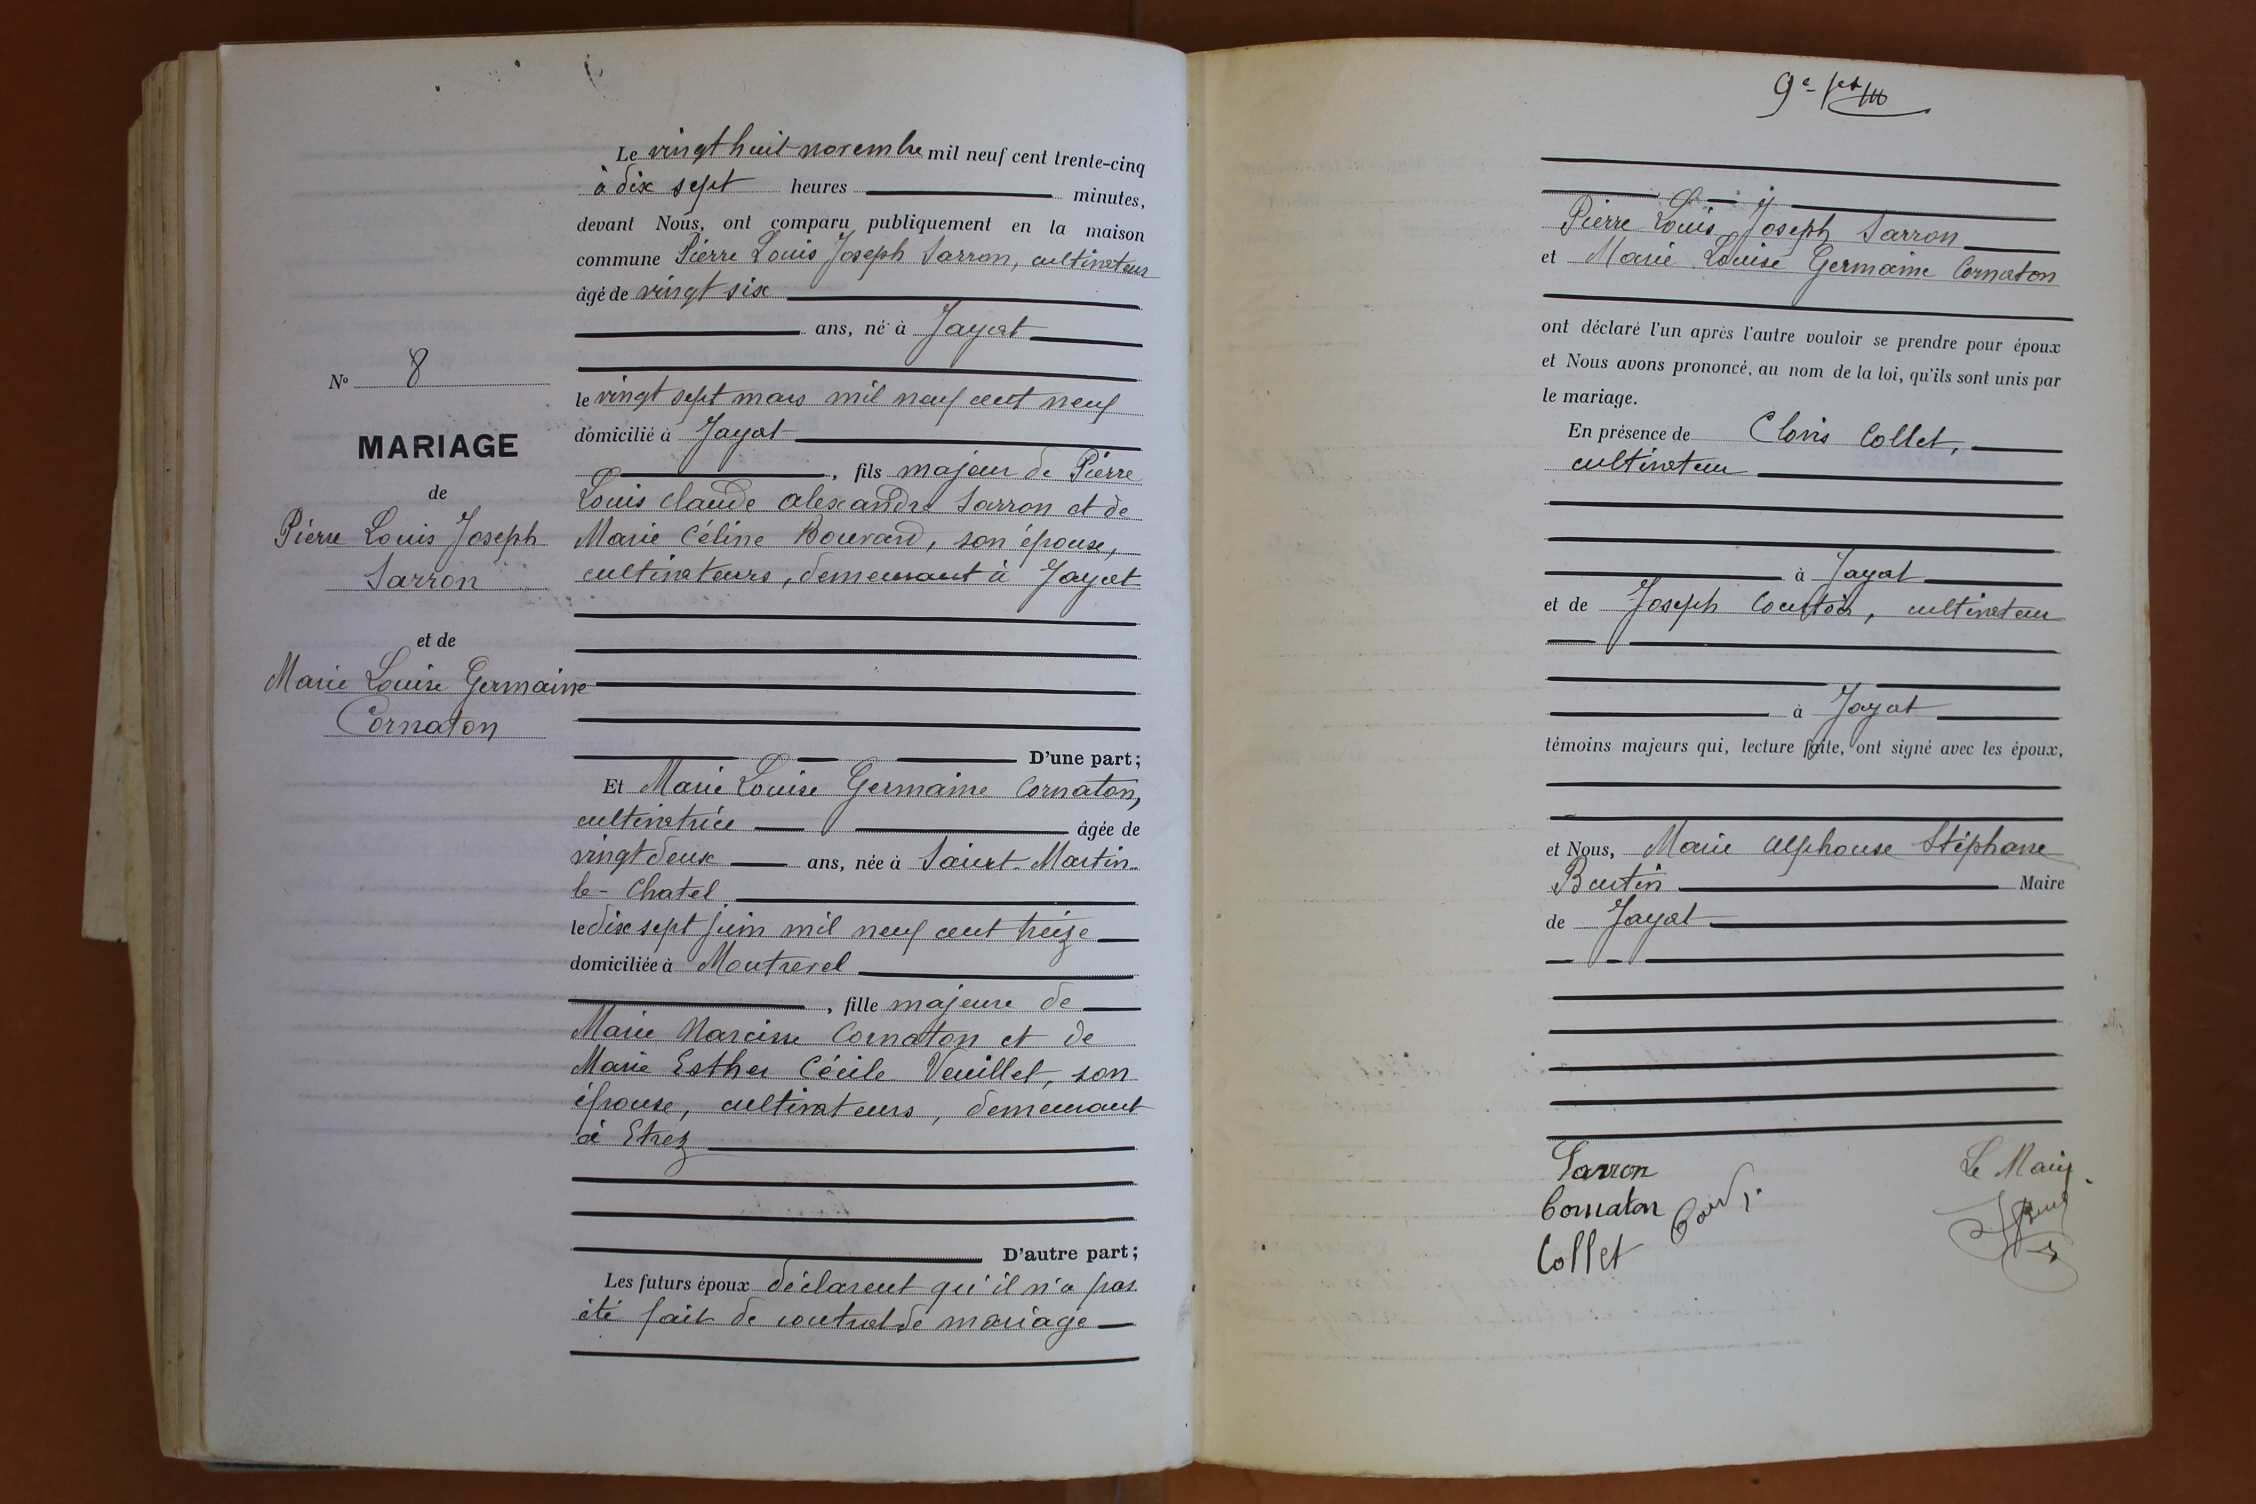 Le vingt huit novembre mil neuf cent trente-cinq
à dix sept heures minutes,
devant Nous, ont comparu publiquement en la maison
commune Pierre Louis Joseph Sarron, cultivateur
âgé de vingt six
ans, né à Jayat
le vingt sept mars mil neuf cent neuf
domicilié à Jayat
, fils majeur de Pierre
Louis Claude Alexandre Sarron et de
Marie Céline Bouvard, son épouse,
cultivateurs, demeurant à Jayat
D'une part;
Et Marie Louise Germaine Cornaton,
cultivatrice âgée de
vingt deux ans, née à Saint-Martin-
le-Chatel
le dix sept juin mil neuf cent treize
domiciliée à Montrevel
, fille majeure de
Marie Narcisse Cornaton et de
Marie Esther Cécile Veuillet, son
épouse, cultivateurs, demeurant
à Etrez
D'autre part;
Les futurs époux déclarent qu'il n'a pas
été fait de contrat de mariage
N° 8
MARIAGE
de
Pierre Louis Joseph
Sarron
et de
Marie Louise Germaine
Cornaton
9e
Pierre Louis Joseph Sarron
et Marie Louise Germaine Cornaton
ont déclaré l'un après l'autre vouloir se prendre pour époux
et Nous avons prononcé, au nom de la loi, qu'ils sont unis par
le mariage.
En présence de Clovis Collet,
cultivateur
à Jayat
et de Joseph Courtois, cultivateur
à Jayat
témoins majeurs qui, lecture faite, ont signé avec les époux,
et Nous, Marie Alphonse Stéphane
Maire
de Jayat
Sarron
Cornaton
Collet
Le Maire